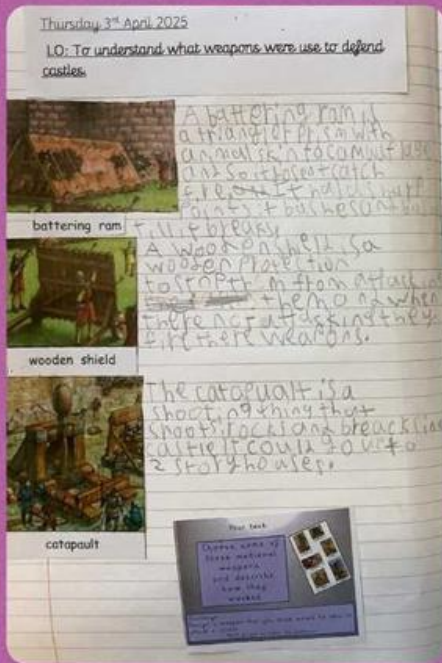 Thursday 3rd April 2025
LO: To understand what weapons were use to defend
castles.
A battering ram is
a triangler prism with
animal skin to camuflage
and so it dosent catch
fire
points + bashes
till it breaks.
battering ram
A wooden sheild is a
wooden protection
to stop them from attacking
them and when
there not attacking they
fire there weapons.
wooden shield
The catapualt is a
shooting thing that
shoots rocks and breacks
castle it could go up to
2 story houses.
catapault
Your task
Choose some of
these medieval
weapons
and describe
how they
worked